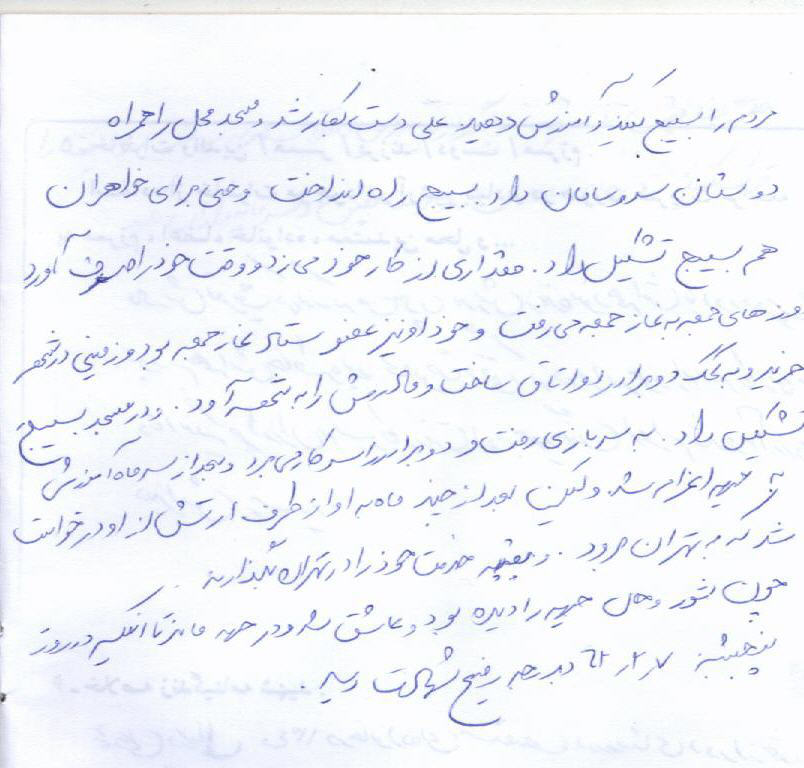 مردم را بسیج کنید و آموزش دهید. علی دست بکار شد و مسجد محل را همراه
دوستان سر و سامان داد بسیج راه انداخت وحتی برای خواهران
هم بسیج تشکیل داد. مقداری از کار خود می زد و وقت خود را صرف آورد
روزهای جمعه به نماز جمعه می رفت و خود او نیز عضو ستاد نماز جمعه بود و زمینی در شهر
خرید و به کمک دو برادر دو اتاق ساخت و مادرش را به شهر آورد. و در مسجد بسیج
تشکیل داد. به سربازی رفت و دو برادر را سر کار می برد و بعد از سه ماه آموزش
به جبهه اعزام شد ولیکن بعد از چند ماه به او از طرف ارتش از او درخواست
شد که به تهران برود. و بقیه خدمت خود را در تهران بگذارند.
چون شور وحال جبهه را دیده بود و عاشق شد و در جبهه ماند تا اینکه در روز
پنجشنبه به درجه رفیع شهادت رسید.